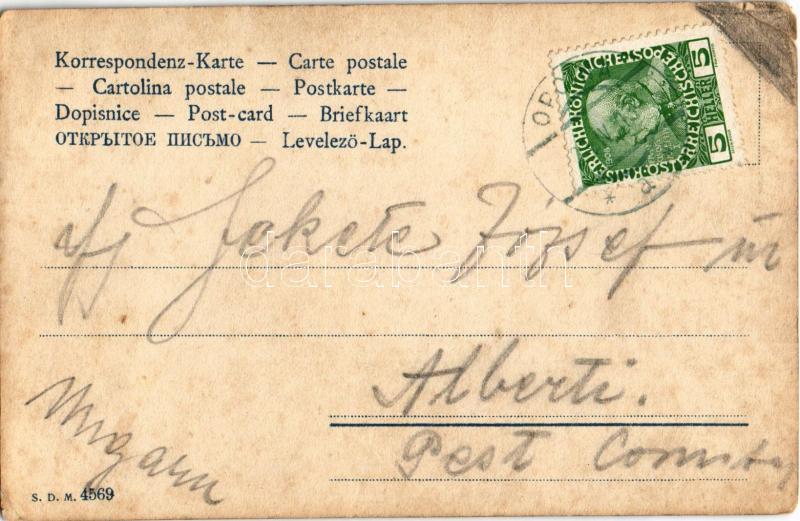 Korrespondenz-Karte — Carte postale
— Cartolina postale — Postkarte —
Dopisnice — Post-card — Briefkaart
ОТКРЫТОЕ ПИСЬМО — Levelezö-Lap.
KAISERLICHE KÖNIGLICHE ÖSTERREICHISCHE POST
5 HELLER 5
ifj Fekete József úr
darabanth
Alberti.
Ungarn
Pest
S. D. M. 4569